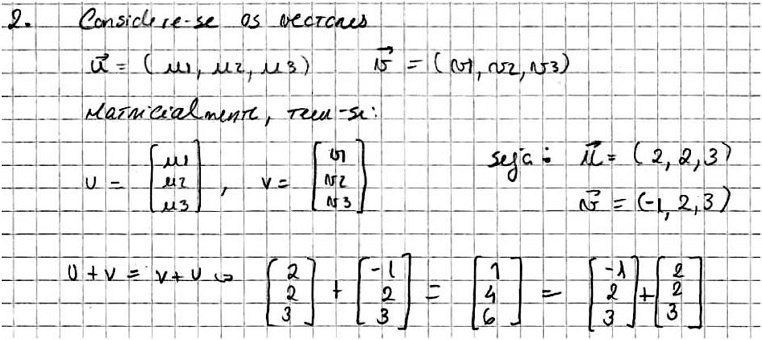 2. Considere-se os vectores
u⃗ = (u1, u2, u3)  v⃗ = (v1, v2, v3)
Matricialmente, tem-se:
U = [u1 u2 u3], V = [v1 v2 v3]  seja: u⃗ = (2, 2, 3)
v⃗ = (-1, 2, 3)
U + V = V + U ⇔ [2 2 3] + [-1 2 3] = [1 4 6] = [-1 2 3] + [2 2 3]